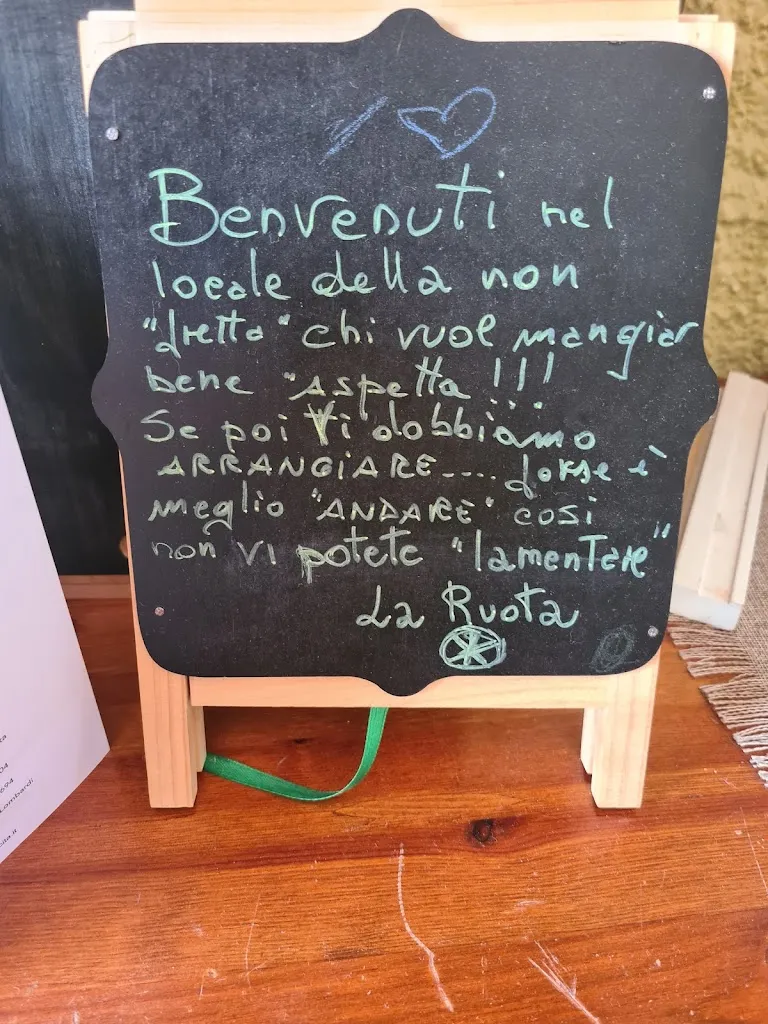 Benvenuti nel
locale della non
"fretta" chi vuol mangiar
bene "Aspetta!!!
Se poi Vi dobbiamo
ARRANGIARE.... forse è
meglio "ANDARE" così
non vi potete "lamentare"
La Ruota
04
694
Lombardi